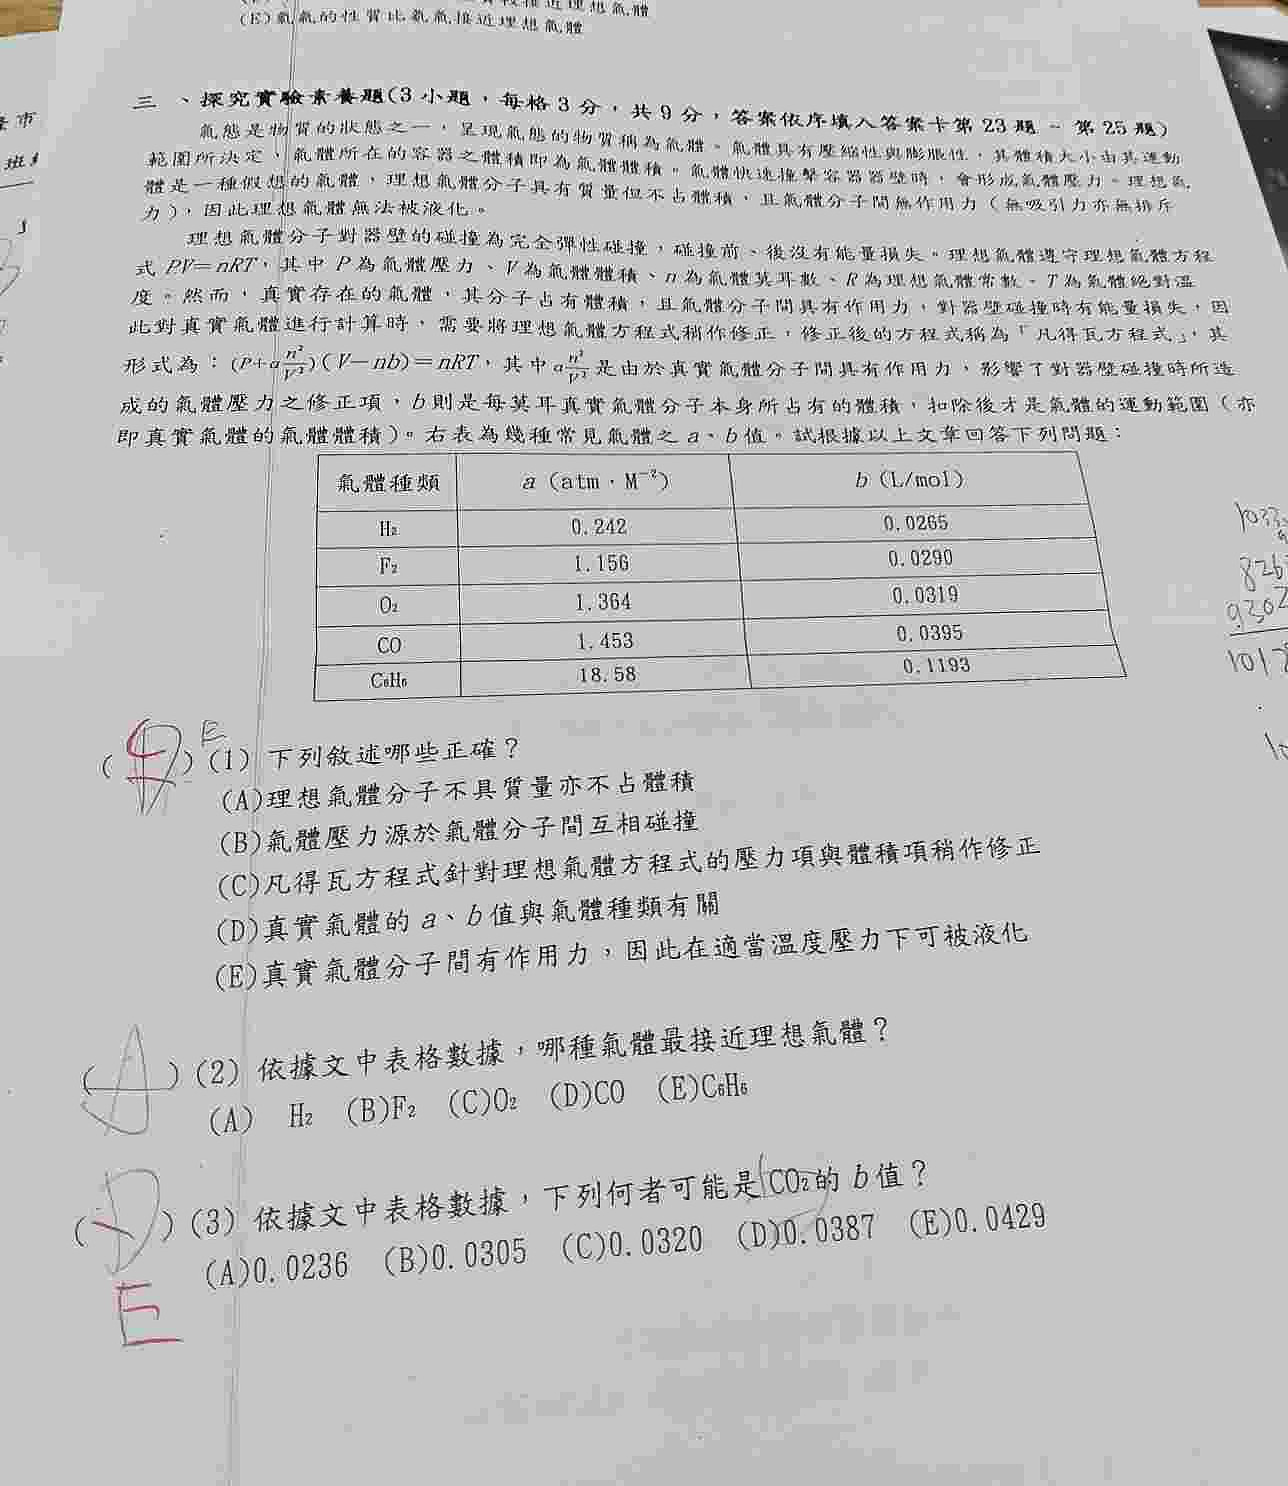 較接近理想氣體
(E)氡氣的性質比氦氣接近理想氣體
三 、探究實驗素養題(3 小題，每格 3 分，共 9 分，答案依序填入答案卡第 23 題 ~ 第 25 題)
氣態是物質的狀態之一，呈現氣態的物質稱為氣體。氣體具有壓縮性與膨脹性，其體積大小由其運動
範圍所決定，氣體所在的容器之體積即為氣體體積。氣體快速撞擊容器器壁時，會形成氣體壓力。理想氣
體是一種假想的氣體，理想氣體分子具有質量但不占體積，且氣體分子間無作用力（無吸引力亦無排斥
力），因此理想氣體無法被液化。
理想氣體分子對器壁的碰撞為完全彈性碰撞，碰撞前、後沒有能量損失。理想氣體遵守理想氣體方程
式 PV=nRT，其中 P 為氣體壓力、V 為氣體體積、n 為氣體莫耳數、R 為理想氣體常數、T 為氣體絕對溫
度。然而，真實存在的氣體，其分子占有體積，且氣體分子間具有作用力，對器壁碰撞時有能量損失，因
此對真實氣體進行計算時，需要將理想氣體方程式稍作修正，修正後的方程式稱為「凡得瓦方程式」，其
形式為：(P+a n²/V²)(V−nb)=nRT，其中 a n²/V² 是由於真實氣體分子間具有作用力，影響了對器壁碰撞時所造
成的氣體壓力之修正項，b 則是每莫耳真實氣體分子本身所占有的體積，扣除後才是氣體的運動範圍（亦
即真實氣體的氣體體積）。右表為幾種常見氣體之 a、b 值。試根據以上文章回答下列問題：
氣體種類 a (atm · M⁻²) b (L/mol)
H₂ 0.242 0.0265
F₂ 1.156 0.0290
O₂ 1.364 0.0319
CO 1.453 0.0395
C₆H₆ 18.58 0.1193
( ) E (1) 下列敘述哪些正確？
(A)理想氣體分子不具質量亦不占體積
(B)氣體壓力源於氣體分子間互相碰撞
(C)凡得瓦方程式針對理想氣體方程式的壓力項與體積項稍作修正
(D)真實氣體的 a、b 值與氣體種類有關
(E)真實氣體分子間有作用力，因此在適當溫度壓力下可被液化
(A) (2) 依據文中表格數據，哪種氣體最接近理想氣體？
(A) H₂ (B)F₂ (C)O₂ (D)CO (E)C₆H₆
(D) (3) 依據文中表格數據，下列何者可能是 CO₂的 b 值？
(A)0.0236 (B)0.0305 (C)0.0320 (D)0.0387 (E)0.0429
E